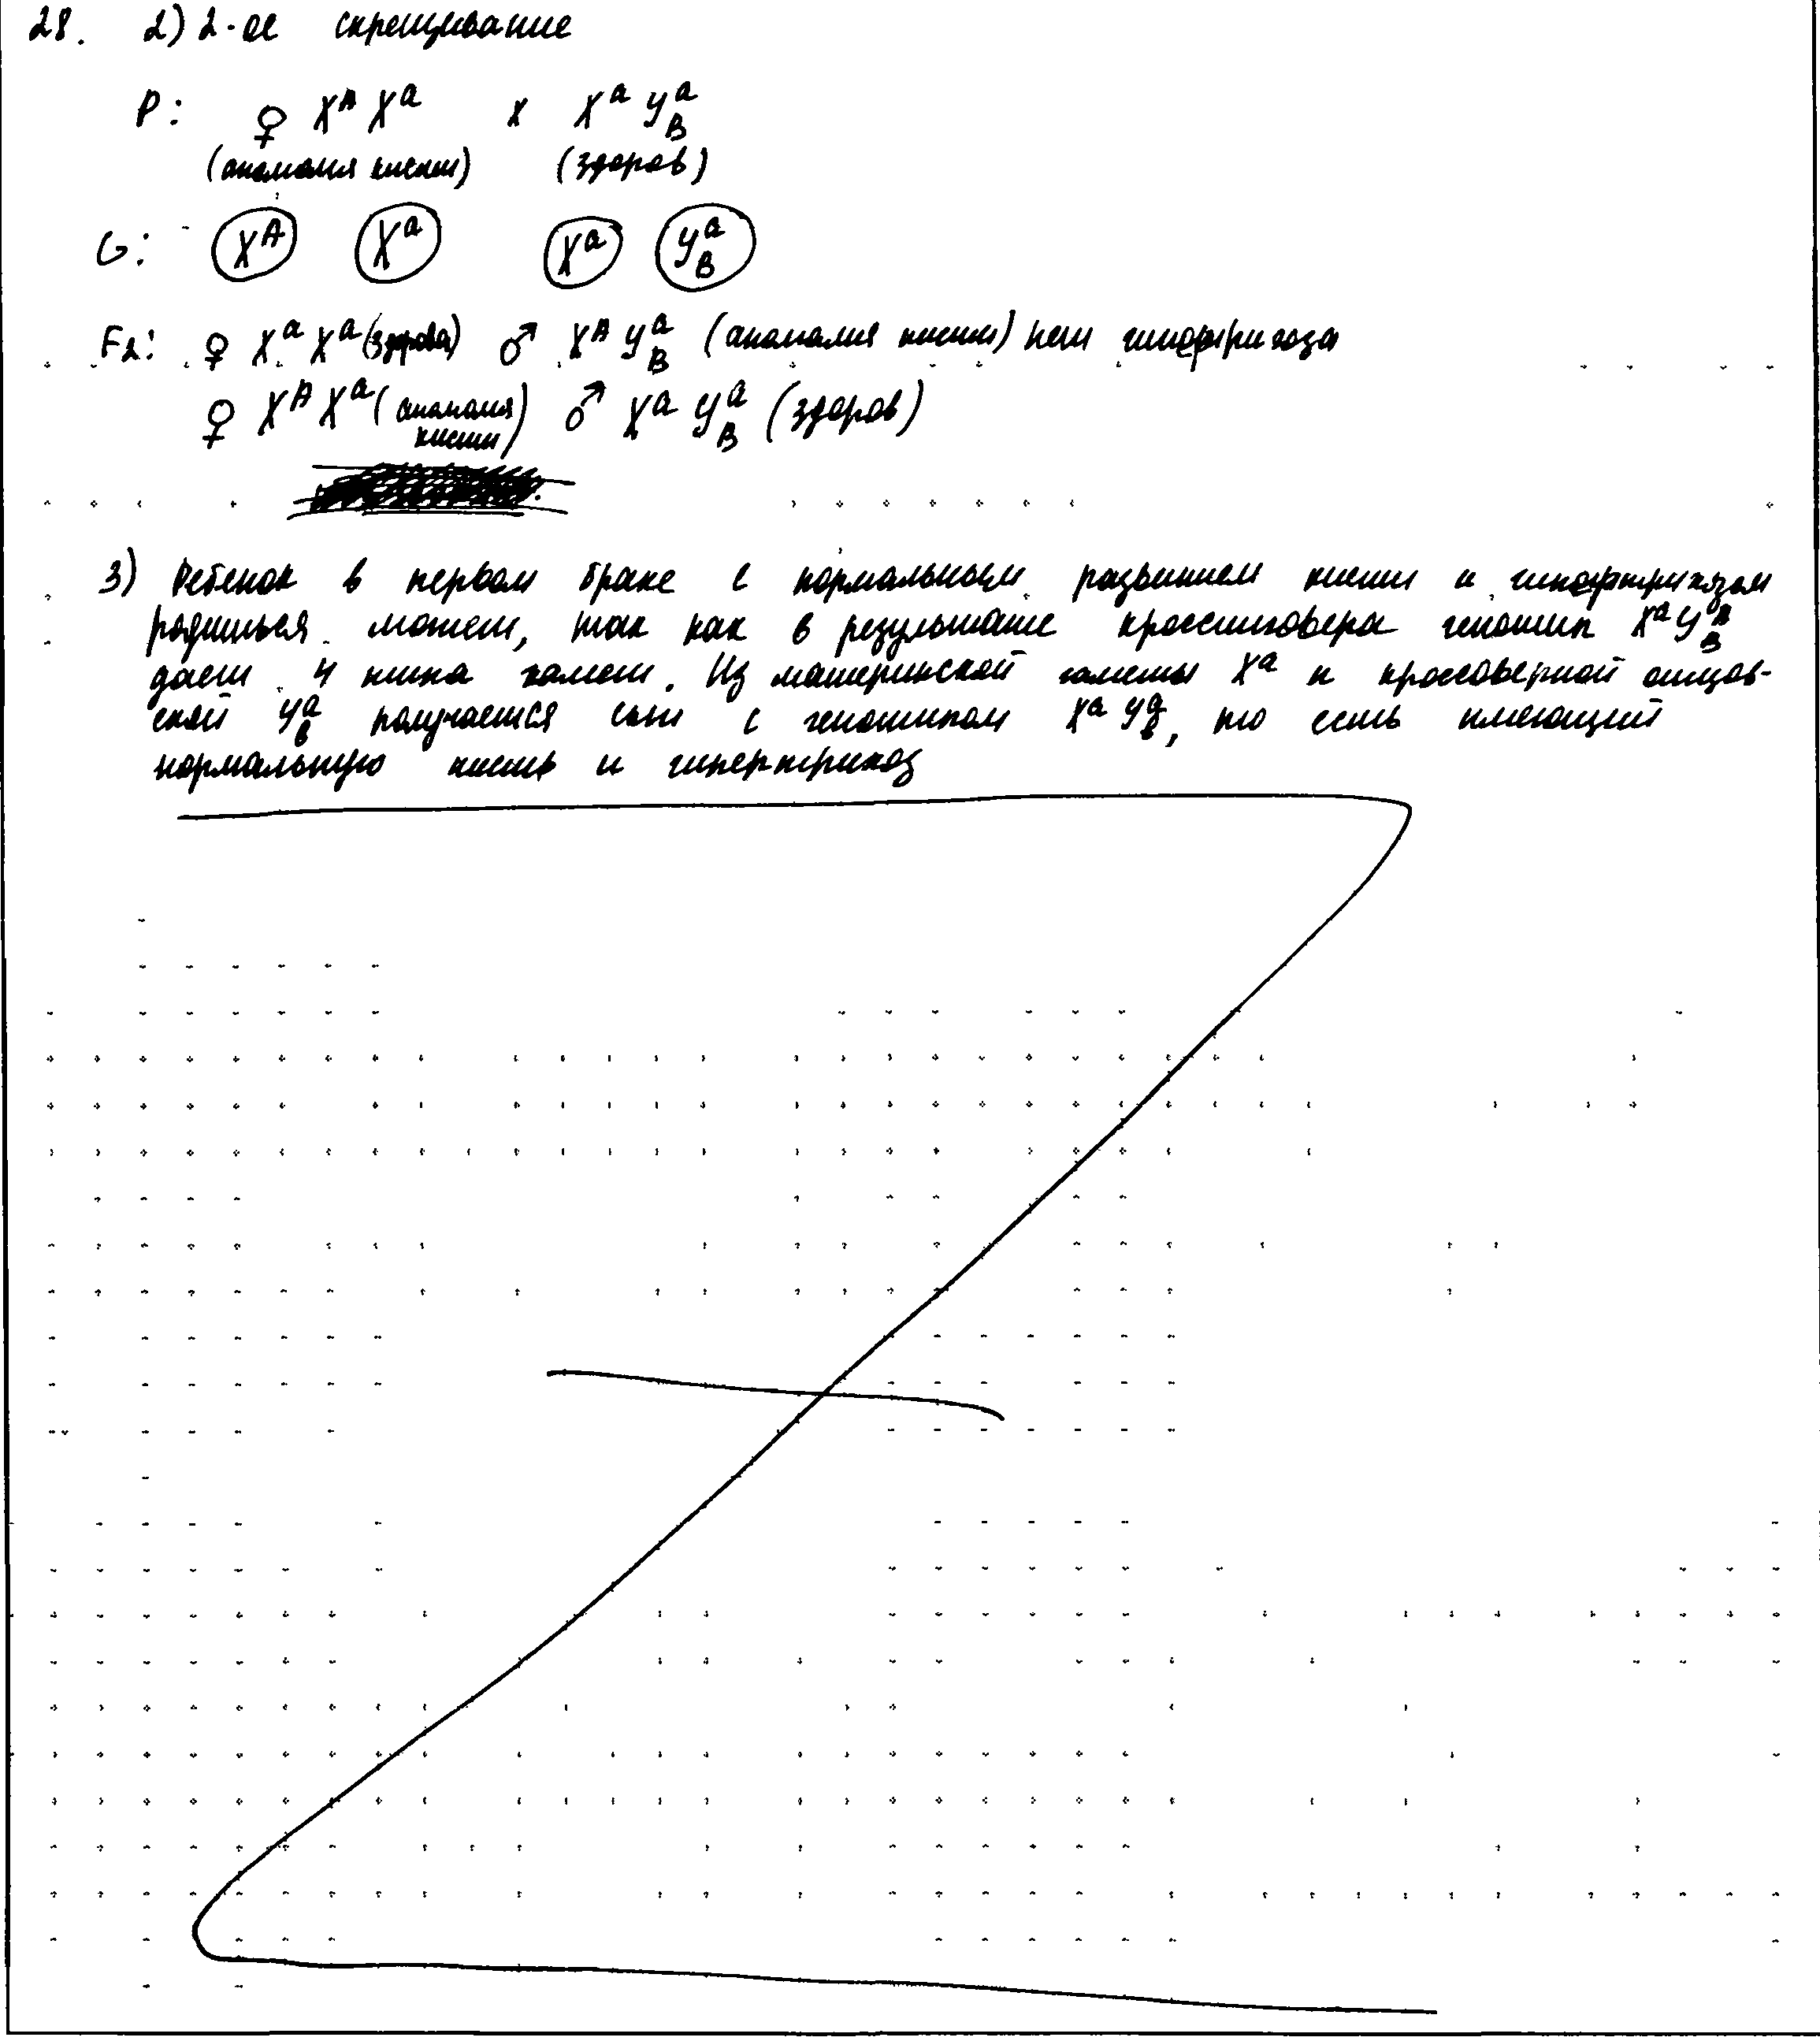 28. 2) 2-ое скрещивание
P: ♀ X^A X^a x X^a Y^a_B
(аномалия кисти) (здоров)
G: X^A X^a X^a Y^a_B
F2: ♀ X^a X^a (здорова) ♂ X^A Y^a_B (аномалия кисти) нет гипертрихоза
♀ X^A X^a (аномалия кисти) ♂ X^a Y^a_B (здоров)
3) Ребенок в первом браке с нормальным развитием кисти и гипертрихозом
родиться может, так как в результате кроссинговера генотип X^a Y^A_в
дает 4 типа гамет. Из материнской гаметы X^a и кроссоверной отцов-
ской Y^a_в получается сын с генотипом X^a Y^a_в, то есть имеющий
нормальную кисть и гипертрихоз